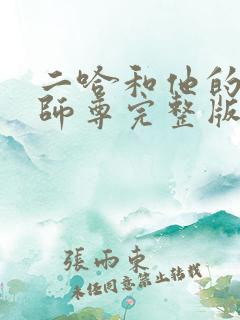 二哈和他的
師尊完整版
張雨東
未任同意禁止轉載